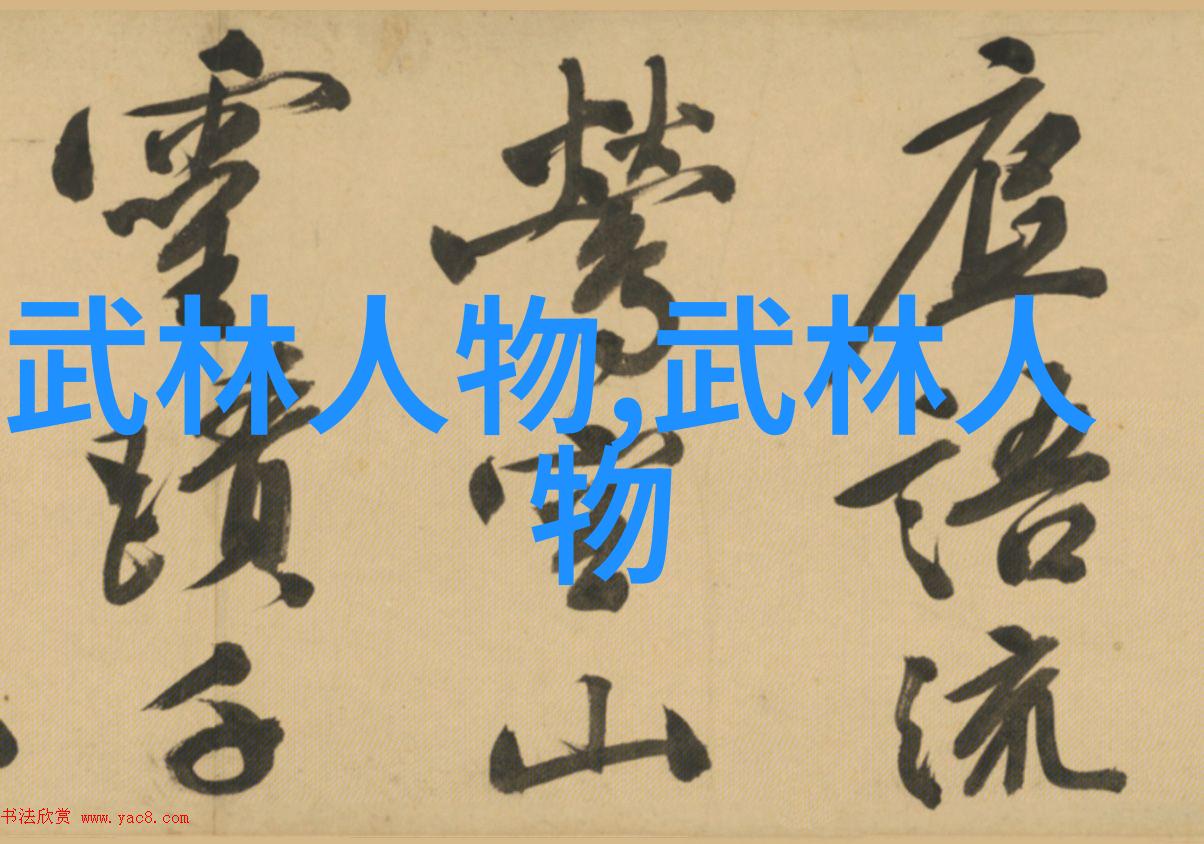 武林人物,武林人
物
庭語流
鶯山
千
书法欣赏 www.yac8.com